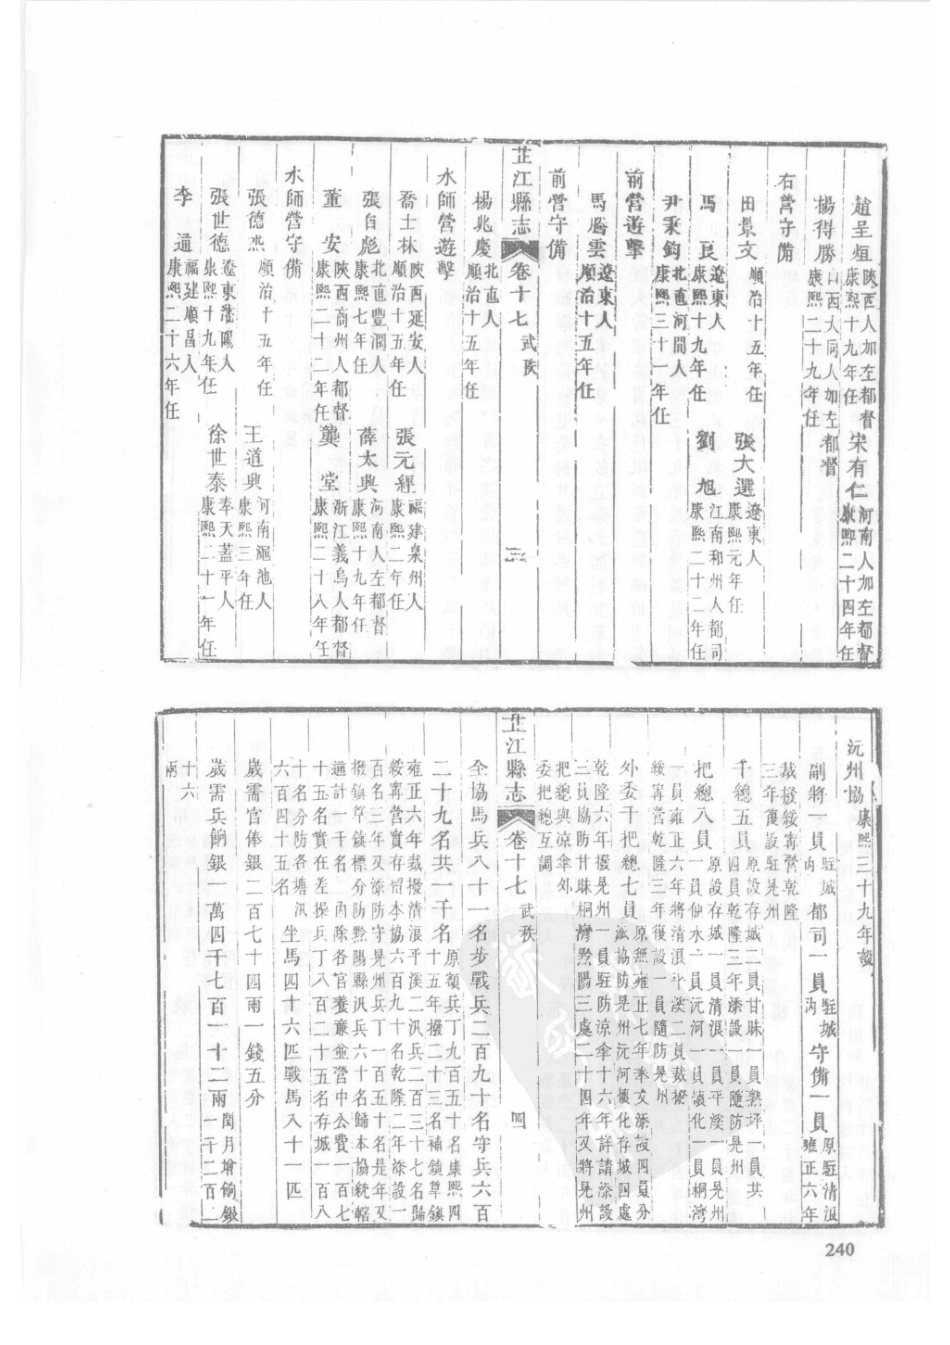 趙呈烜 陝西人加左都督康熙十九年任 宋有仁 河南人加左都督康熙二十四年任
楊得勝 山西大同人加左都督康熙二十九年任
右營守備
田景文 順治十五年任 張大選 遼東人康熙元年任
馬良 遼東人康熙十九年任 劉旭 江南和州人都司康熙二十二年任
尹秉鈞 北直河間人康熙三十一年任
前營遊擊
馬騰雲 遼東人順治十五年任
前營守備
芷江縣志 卷十七 武秩 三
楊兆慶 北直人順治十五年任
水師營遊擊
喬士林 陝西延安人順治十五年任 張元經 福建泉州人康熙二年任
張自彪 北直豐潤人康熙七年任 薛太典 河南人左都督康熙十九年任
董安 陝西商州人都督康熙二十二年任 龔堂 浙江義烏人都督康熙二十八年任
水師營守備
張德杰 順治十五年任 王道典 河南澠池人康熙三年任
張世德 遼東瀋陽人康熙十九年任 徐世泰 奉天蓋平人康熙二十一年任
李通 福建順昌人康熙二十六年任
沅州協 康熙三十九年設
副將一員 駐城內 都司一員 駐城內 守備一員 原駐清浪雍正六年
裁撥綏寧營乾隆三年復設駐晃州
千總五員 原設存城二員甘昧一員熟坪一員共四員乾隆三年添設一員隨防晃州
把總八員 原設存城一員清浪一員平溪一員晃州一員便水一員沅河一員懷化一員桐灣
一員雍正六年將清浪平溪二員裁撥綏寧營乾隆三年復設一員隨防晃州
外委千把總七員 原無雍正七年奉文添設四員分派協防晃州沅河懷化存城四處
乾隆六年撥晃州一員駐防涼傘十六年詳請添設三員協防甘昧桐灣黔陽三處二十四年又將晃州
把總與涼傘外委把總互調
芷江縣志 卷十七 武秩 四
全協馬兵八十一名步戰兵二百九十名守兵六百
二十九名共一千名 原額兵丁九百五十名康熙四十五年撥二十三名補鎮筸鎮
雍正六年裁撥清浪平溪二汛兵二百三十七名歸綏寧營實存留本協六百九十名乾隆二年添設一
百名三年又添防守晃州兵丁一百五十名是年又撥鎮筸鎮標分防黔陽縣汛兵六十名歸本協統轄
通計一千名 內除各官養廉並營中公費一百七十五名實在差操兵丁八百二十五名存城一百八
十名分防各塘汛六百四十五名 坐馬四十六匹戰馬八十一匹
歲需官俸銀二百七十四兩一錢五分
歲需兵餉銀一萬四千七百一十二兩 閏月增餉銀一千二百二
十六兩
240